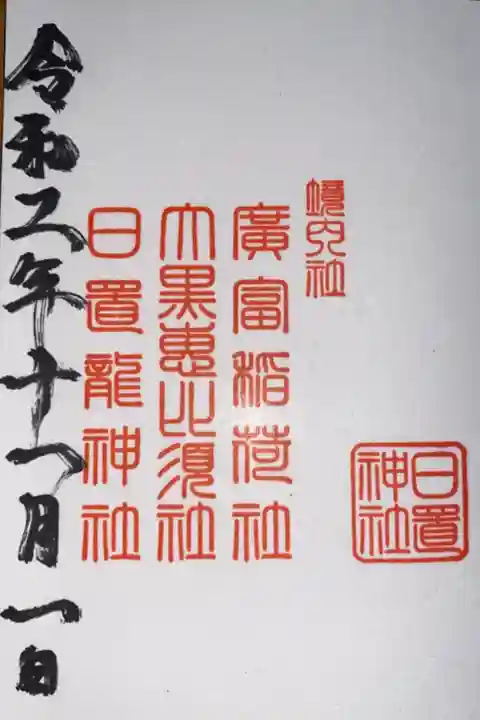 境内社
廣富稲荷社
大黒恵比須社
日置龍神社
日置神社
令和二年十一月一日